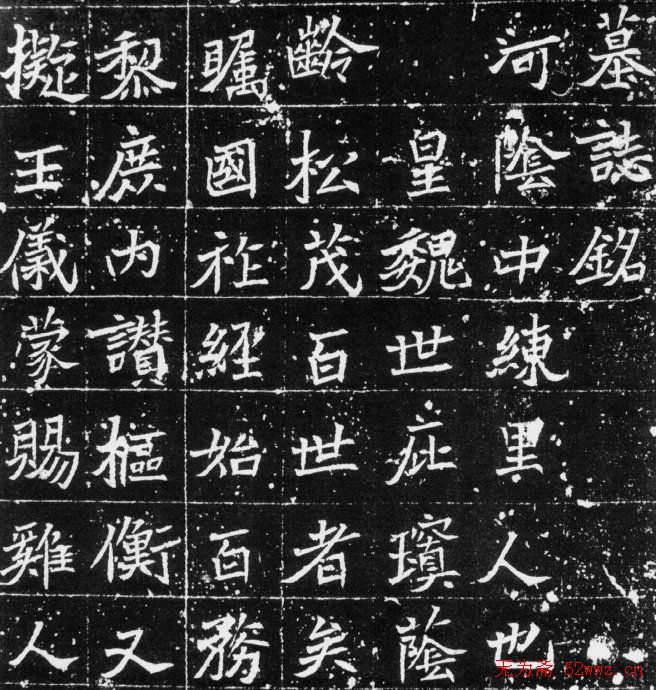 墓誌銘
河陰中練里人也
皇魏世疵瓊蔭
齡松茂百世者矣
矚國祚經始百務
黎庶內讚樞衡又
擬王儀蒙賜雞人
无为斋 52wwz.cn